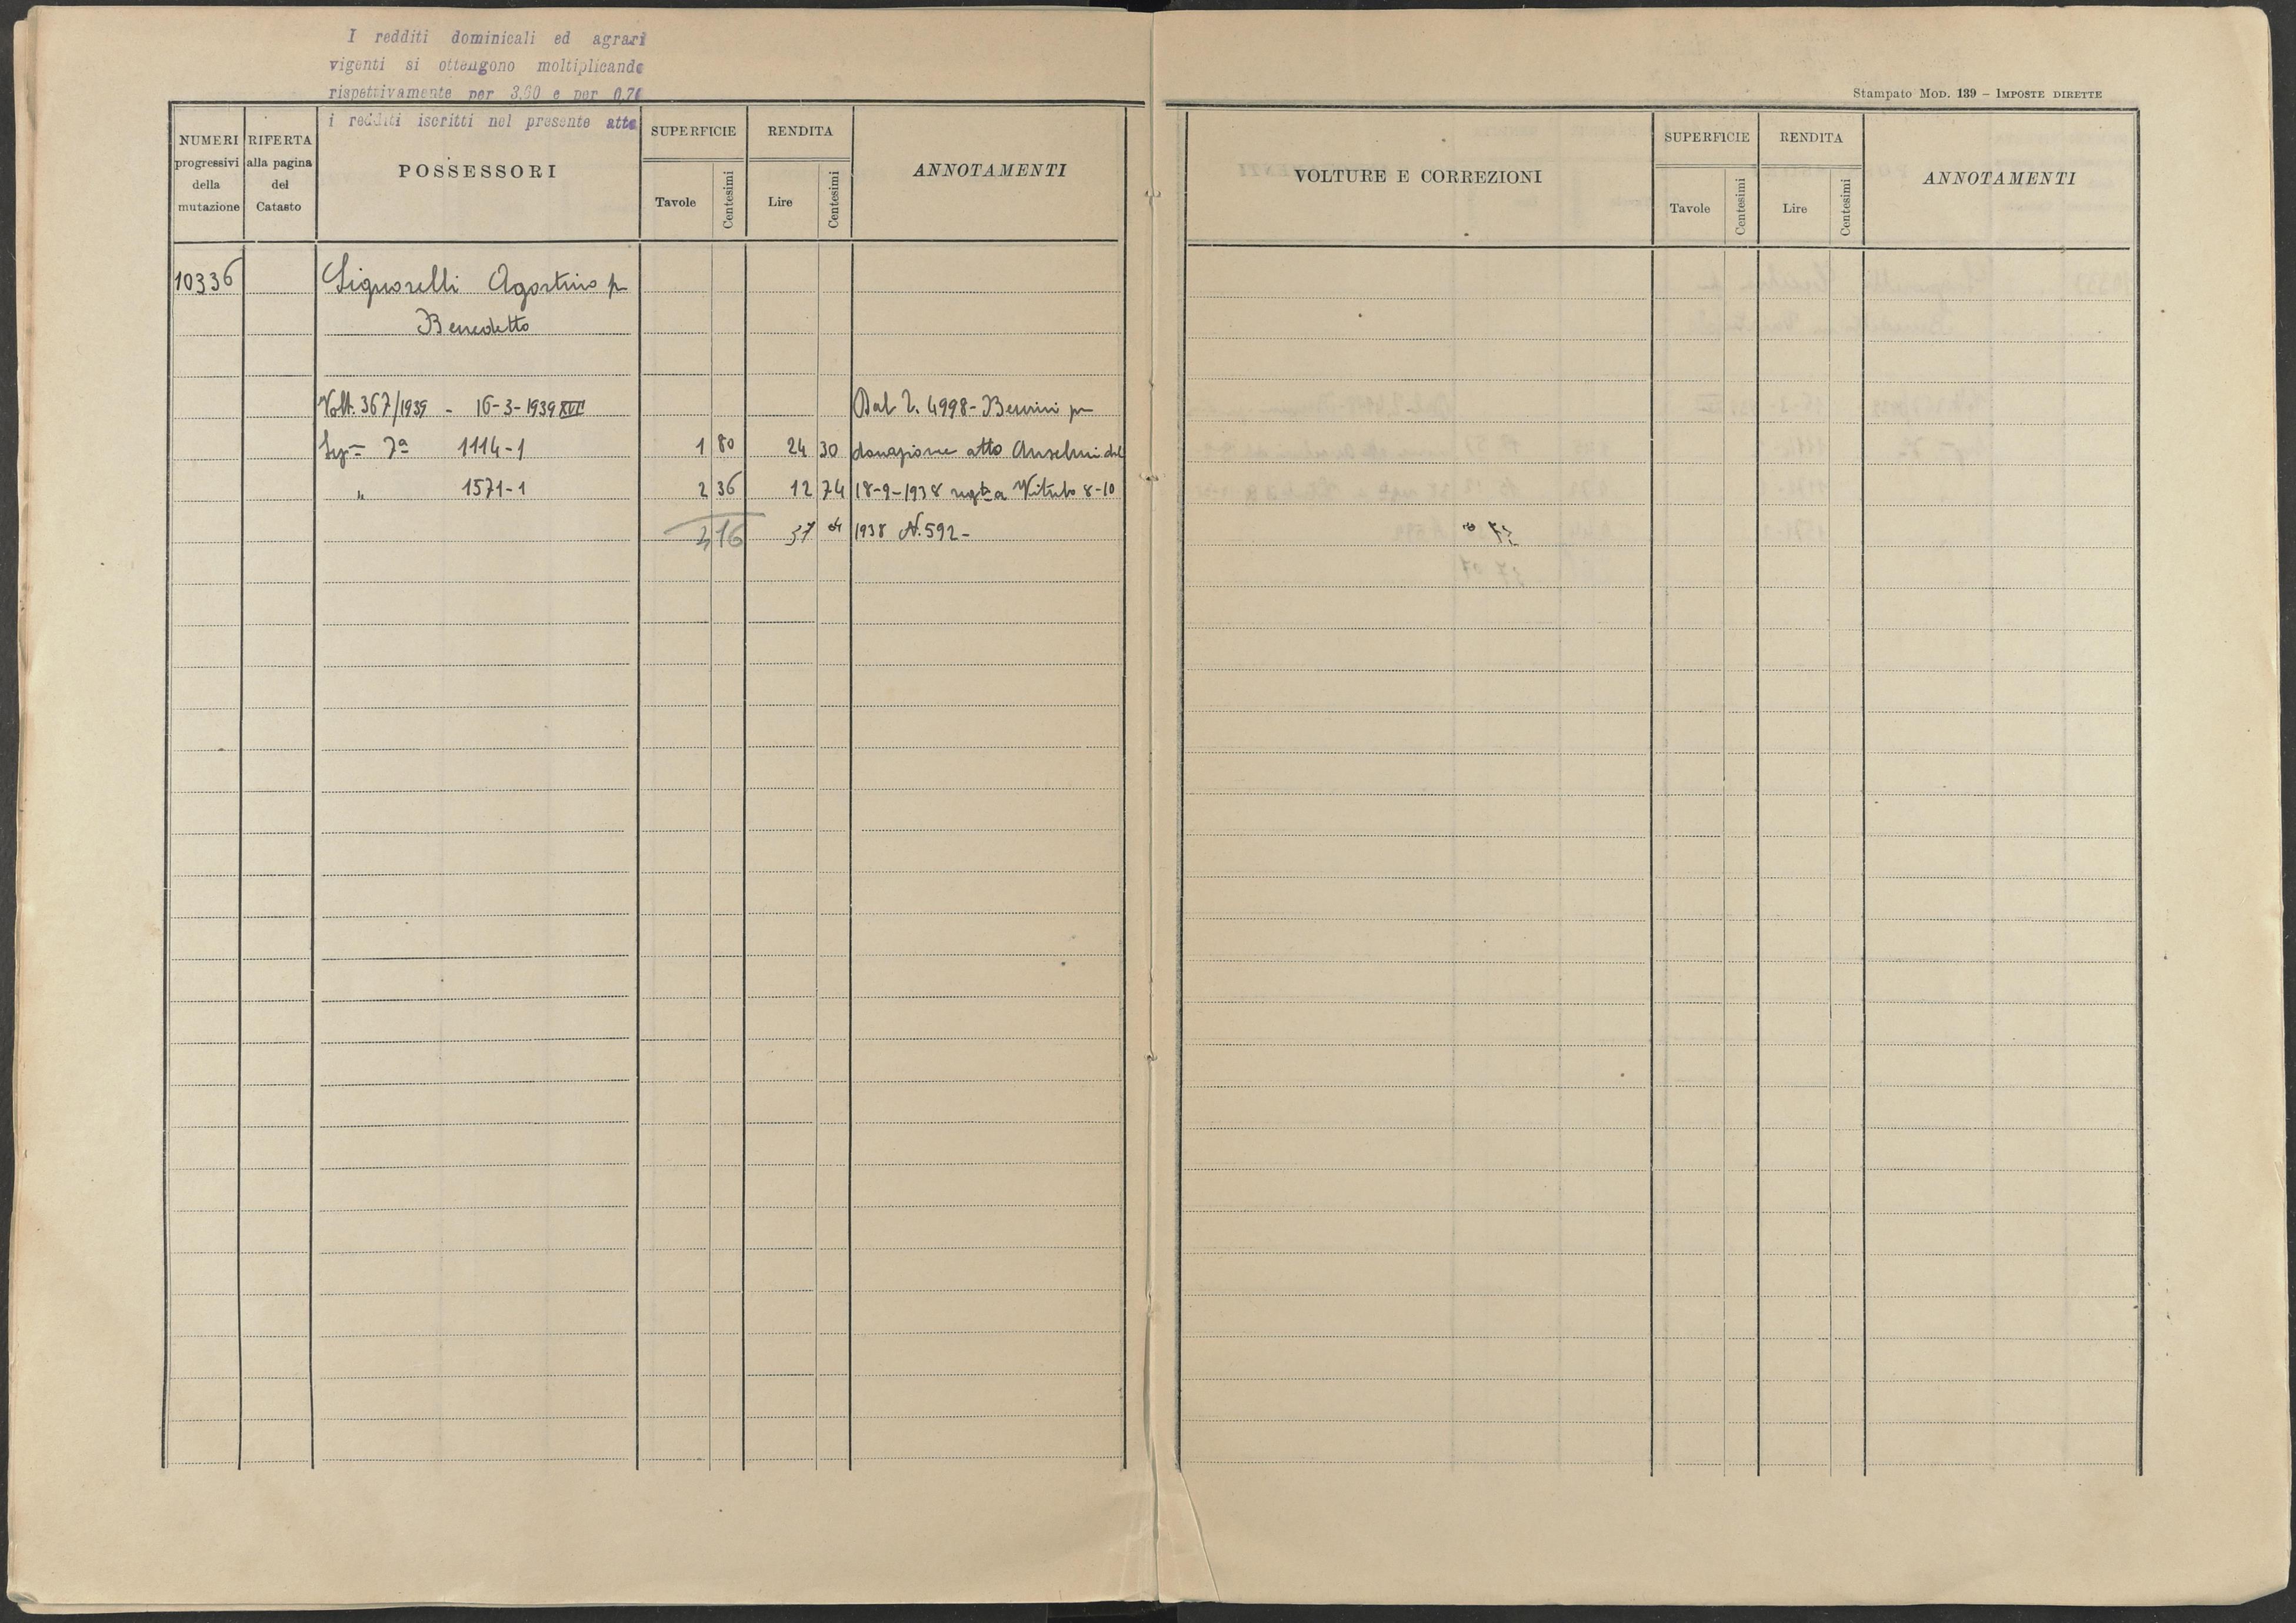 I redditi dominicali ed agrari
vigenti si ottengono moltiplicando
rispettivamente per 3,60 e per 0,70
i redditi iscritti nel presente atto
NUMERI progressivi della mutazione
RIFERTA alla pagina del Catasto
POSSESSORI
SUPERFICIE
Tavole Centesimi
RENDITA
Lire Centesimi
ANNOTAMENTI
10336 Signorelli Agostino p
Benedetto
Volt. 367/1939 - 16-3-1939 XVII Dal 2. 4998 - Bernini per
Sez= 7a 1114-1 1 80 24 30 donazione atto Anselmi del
" 1571-1 2 36 12 74 18-9-1938 regta a Viterbo 8-10
416 37 04 1938 N. 592-
Stampato MOD. 139 - IMPOSTE DIRETTE
VOLTURE E CORREZIONI
SUPERFICIE
Tavole Centesimi
RENDITA
Lire Centesimi
ANNOTAMENTI